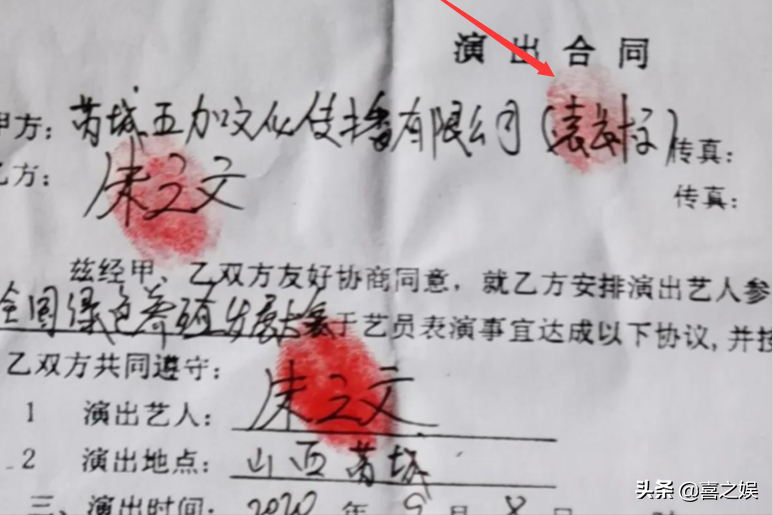 演出合同
甲方：芮城五加文化传播有限公司（袁 ）传真：
乙方：朱之文 传真：
兹经甲、乙双方友好协商同意，就乙方安排演出艺人参
全国绿色养殖发展大会于艺员表演事宜达成以下协议，并按
乙双方共同遵守：
1 演出艺人：朱之文
2 演出地点：山西芮城
三、演出时间：2020年9月8日
头条 @喜之娱